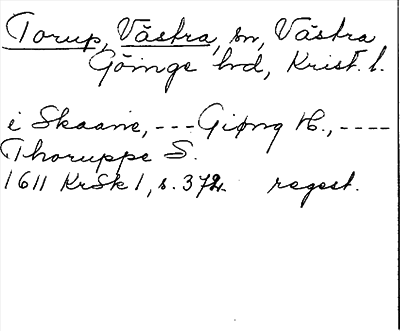 Torup, Västra, sn, Västra
Göinge hd, Krist. l.
i Skaane, --- Giøng H., ----
Thoruppe S.
1611 KrSk 1, s. 372. regest.